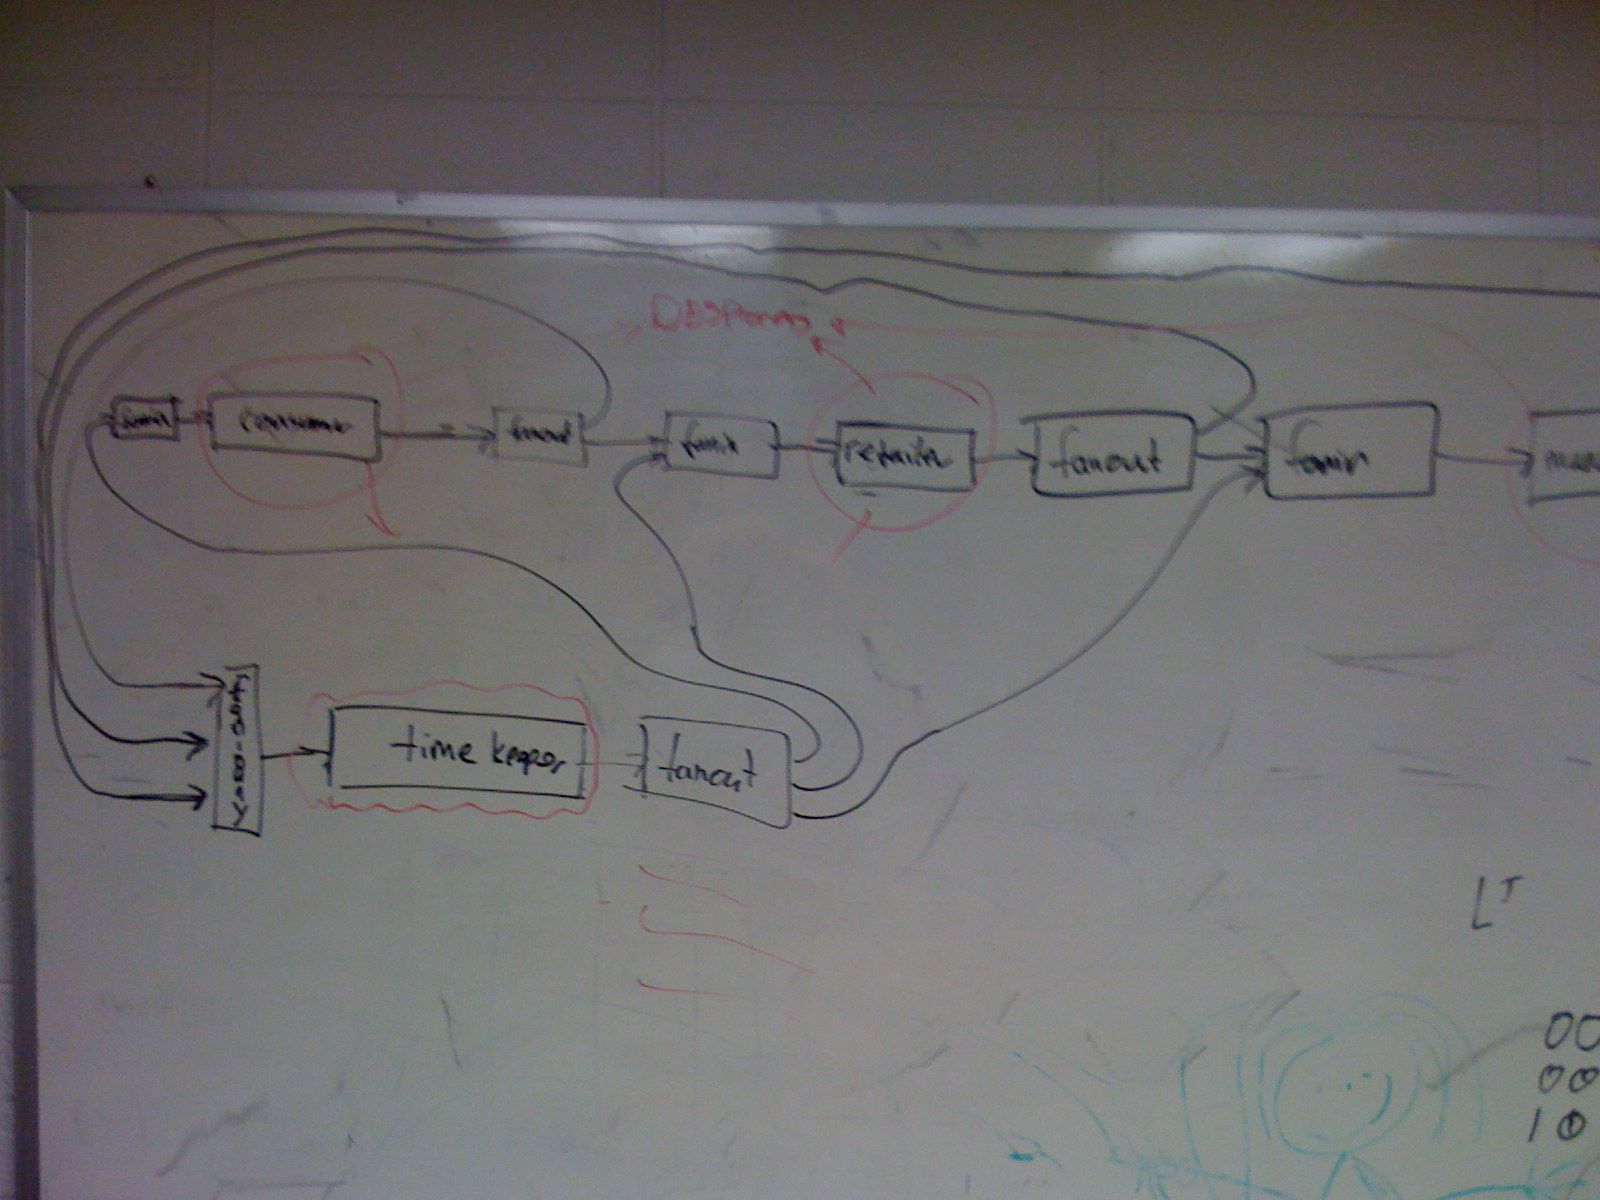 fanin
consumer
fanout
fanin
retailer
fanout
fanin
time keeper
fanout
LT
00
00
10